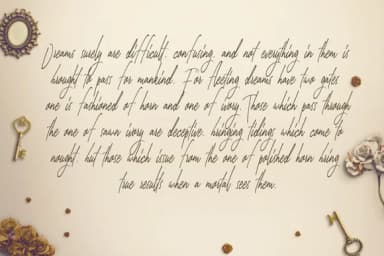 Dreams surely are difficult, confusing, and not everything in them is
brought to pass for mankind. For fleeting dreams have two gates:
one is fashioned of horn and one of ivory. Those which pass through
the one of sawn ivory are deceptive, bringing tidings which come to
nought, but those which issue from the one of polished horn bring
true results when a mortal sees them.